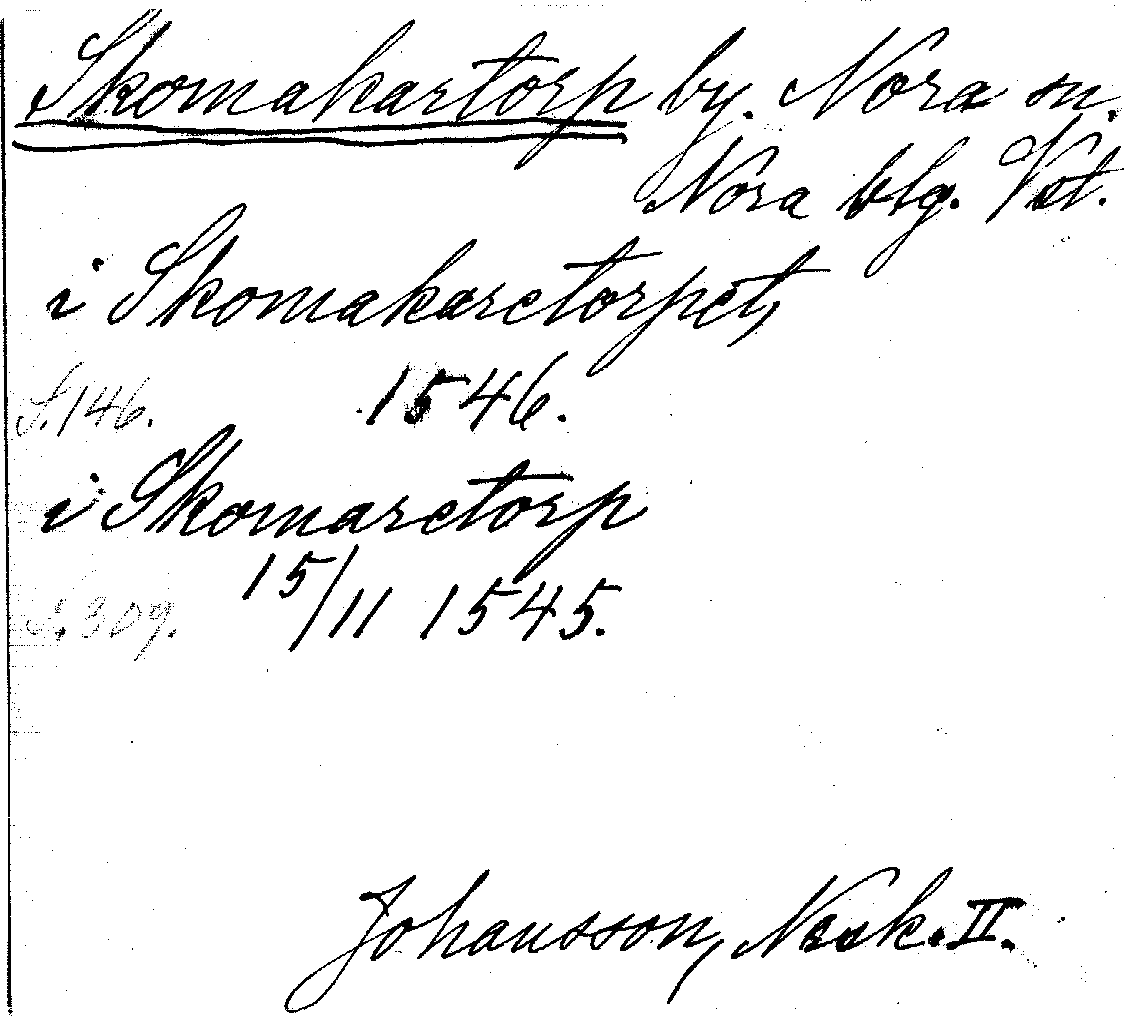 Skomakartorp by. Nora sn.
Nora blg. Vst.
i Skomakaretorpet,
S. 146. 1546.
i Skomaretorp
S. 309. 15/11 1545.
Johansson, Nsk. II.